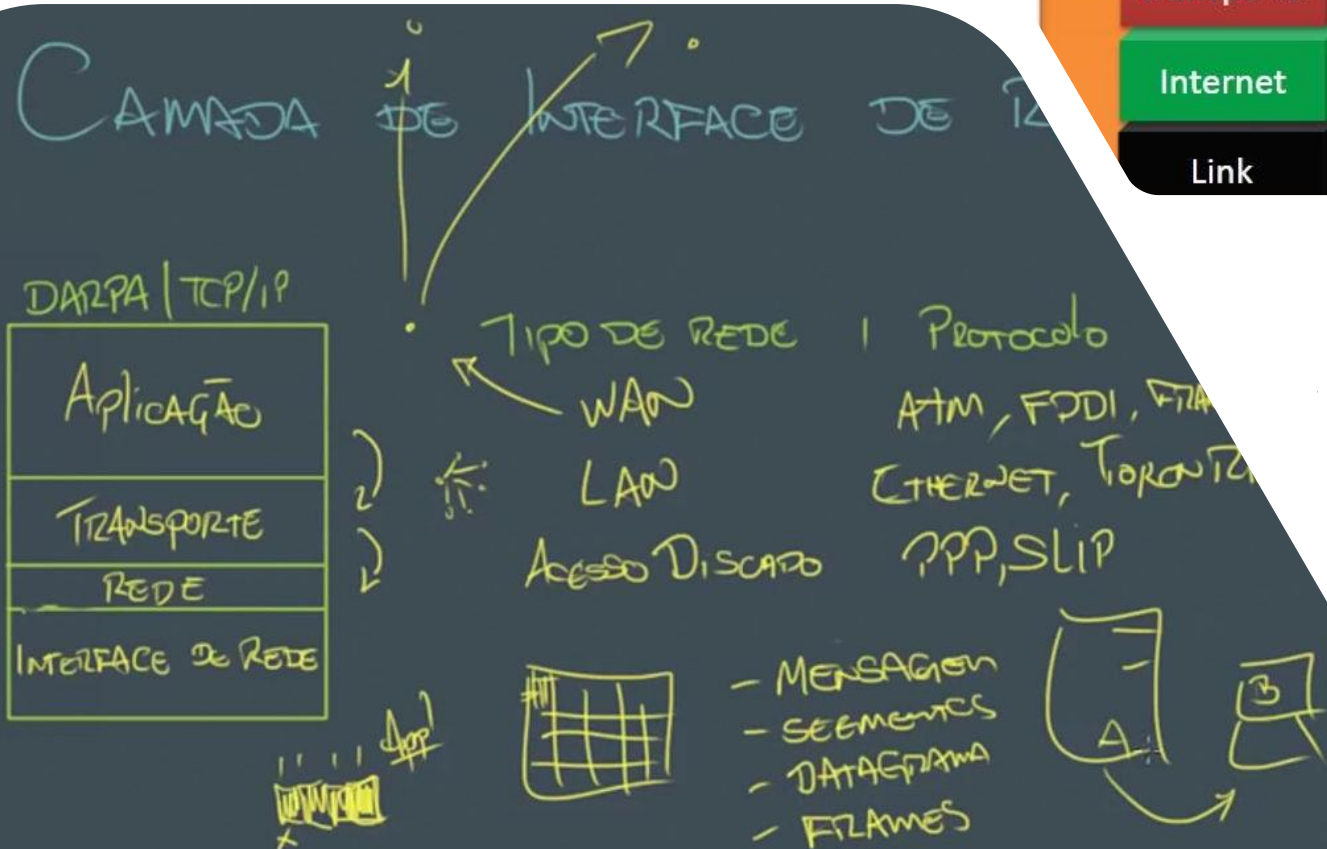 CAMADA DE INTERFACE DE R
Internet
Link
DARPA | TCP/IP
APLICAÇÃO
TRANSPORTE
REDE
INTERFACE DE REDE
TIPO DE REDE | PROTOCOLO
WAN ATM, FDDI, FRA
LAN ETHERNET,
ACESSO DISCADO PPP, SLIP
App
- MENSAGEM
- SEGMENTOS
- DATAGRAMA
- FRAMES
A
B